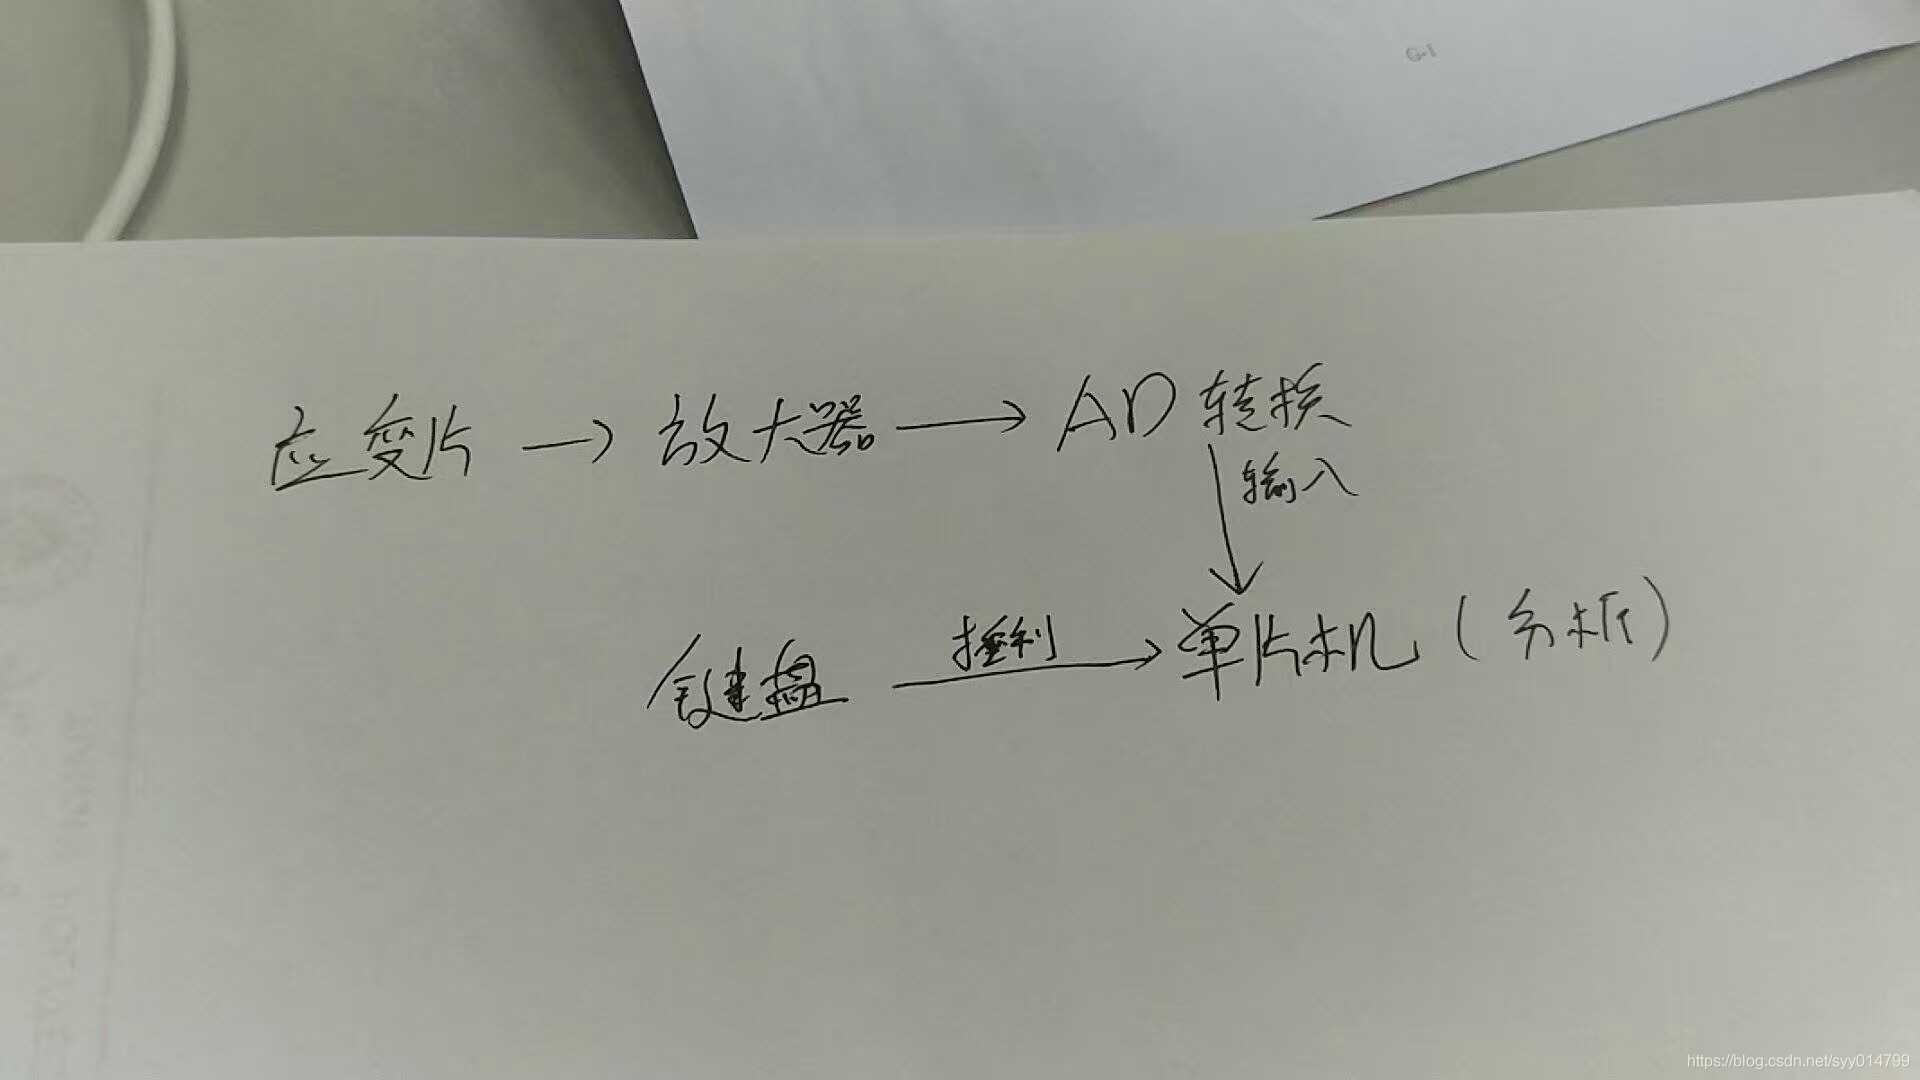 应变片 → 放大器 → AD转换
输入
控制
键盘 → 单片机（分析）
https://blog.csdn.net/syy014799